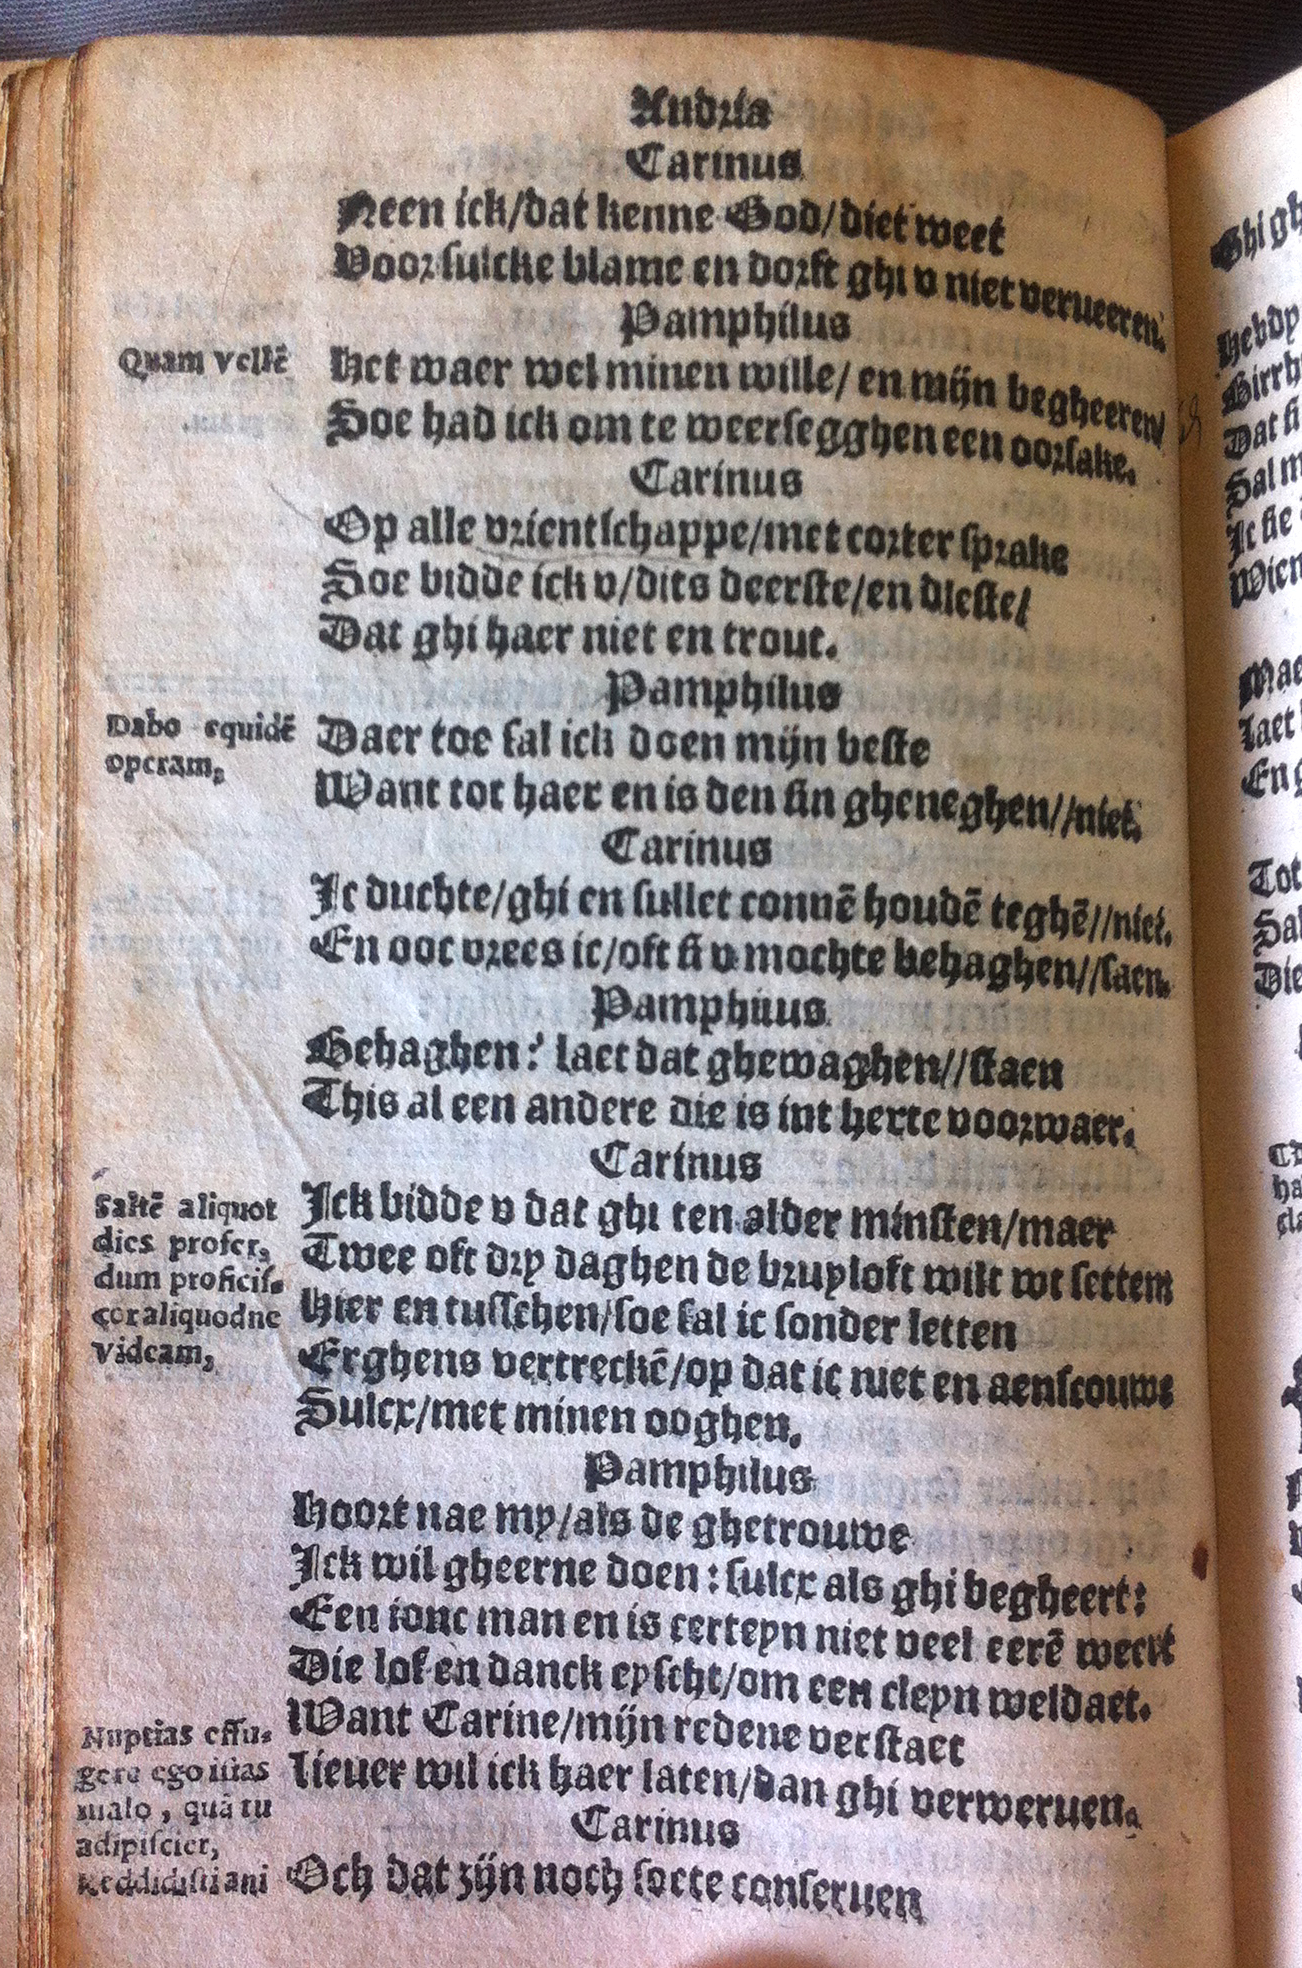 Andria
Carinus
Neen ick/dat kenne God/diet weet
Voor sulcke blame en dorft ghi v niet verueeren.
Pamphilus
Quam vellē
Het waer wel minen wille/ en mijn begheeren/
Soe had ick om te weersegghen een oorsake.
Carinus
Op alle vrientschappe/met corter sprake
Soe bidde ick v/dits deerste/en dleste/
Dat ghi haer niet en trout.
Pamphilus
Dabo equidē
operam,
Daer toe sal ick doen mijn beste
Want tot haer en is den sin gheneghen//niet.
Carinus
Ic duchte/ghi en sullet connē houdē teghē//niet.
En ooc vrees ic/oft si v mochte behaghen//saen.
Pamphilus
Behaghen? laet dat ghewaghen//staen
This al een andere die is int herte voorwaer.
Carinus
Saltē aliquot
dies profer,
dum proficis,
cor aliquo dne
videam,
Ick bidde v dat ghi ten alder minsten/maer
Twee oft dry daghen de bruyloft wilt wt setten
Hier en tusschen/soe sal ic sonder letten
Erghens vertreckē/op dat ic niet en aenscouwe
Sulcx/met minen ooghen.
Pamphilus
Hoort nae my/als de ghetrouwe
Ick wil gheerne doen: sulcx als ghi begheert:
Een ionc man en is certeyn niet veel eerē weert
Die lof en danck eyscht/om een cleyn weldaet.
Nuptias effu,
gere ego istas
malo, quā tu
adipiscier,
Reddidisti ani
Want Carine/mijn redene verstaet
Lieuer wil ick haer laten/dan ghi verweruen.
Carinus
Och dat zijn noch soete conseruen